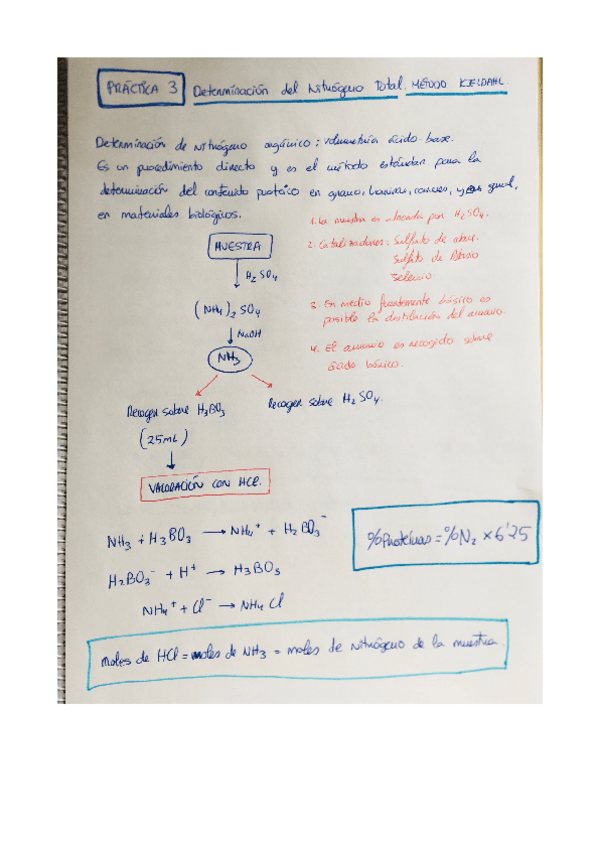 PRÁCTICA 3 Determinación del Nitrógeno Total. MÉTODO KJELDAHL.
Determinación de Nitrógeno orgánico: volumetría ácido-base.
Es un procedimiento directo y es el método estándar para la
determinación del contenido proteico en grano, harinas, carnes, y en general,
en materiales biológicos.
MUESTRA
H2SO4
(NH4)2SO4
NaOH
NH3
Recoger sobre H3BO3
(25mL)
Recoger sobre H2SO4.
VALORACIÓN CON HCl.
1. La muestra es atacada por H2SO4.
2. Catalizadores: Sulfato de
Sulfato de
Selenio
3. En medio fuertemente básico es
posible la destilación del amonio.
4. El amonio es recogido sobre
ácido bórico.
NH3 + H3BO3 → NH4+ + H2BO3-
H2BO3- + H+ → H3BO3
NH4+ + Cl- → NH4Cl
%Proteínas = %N2 × 6'25
moles de HCl = moles de NH3 = moles de nitrógeno de la muestra.